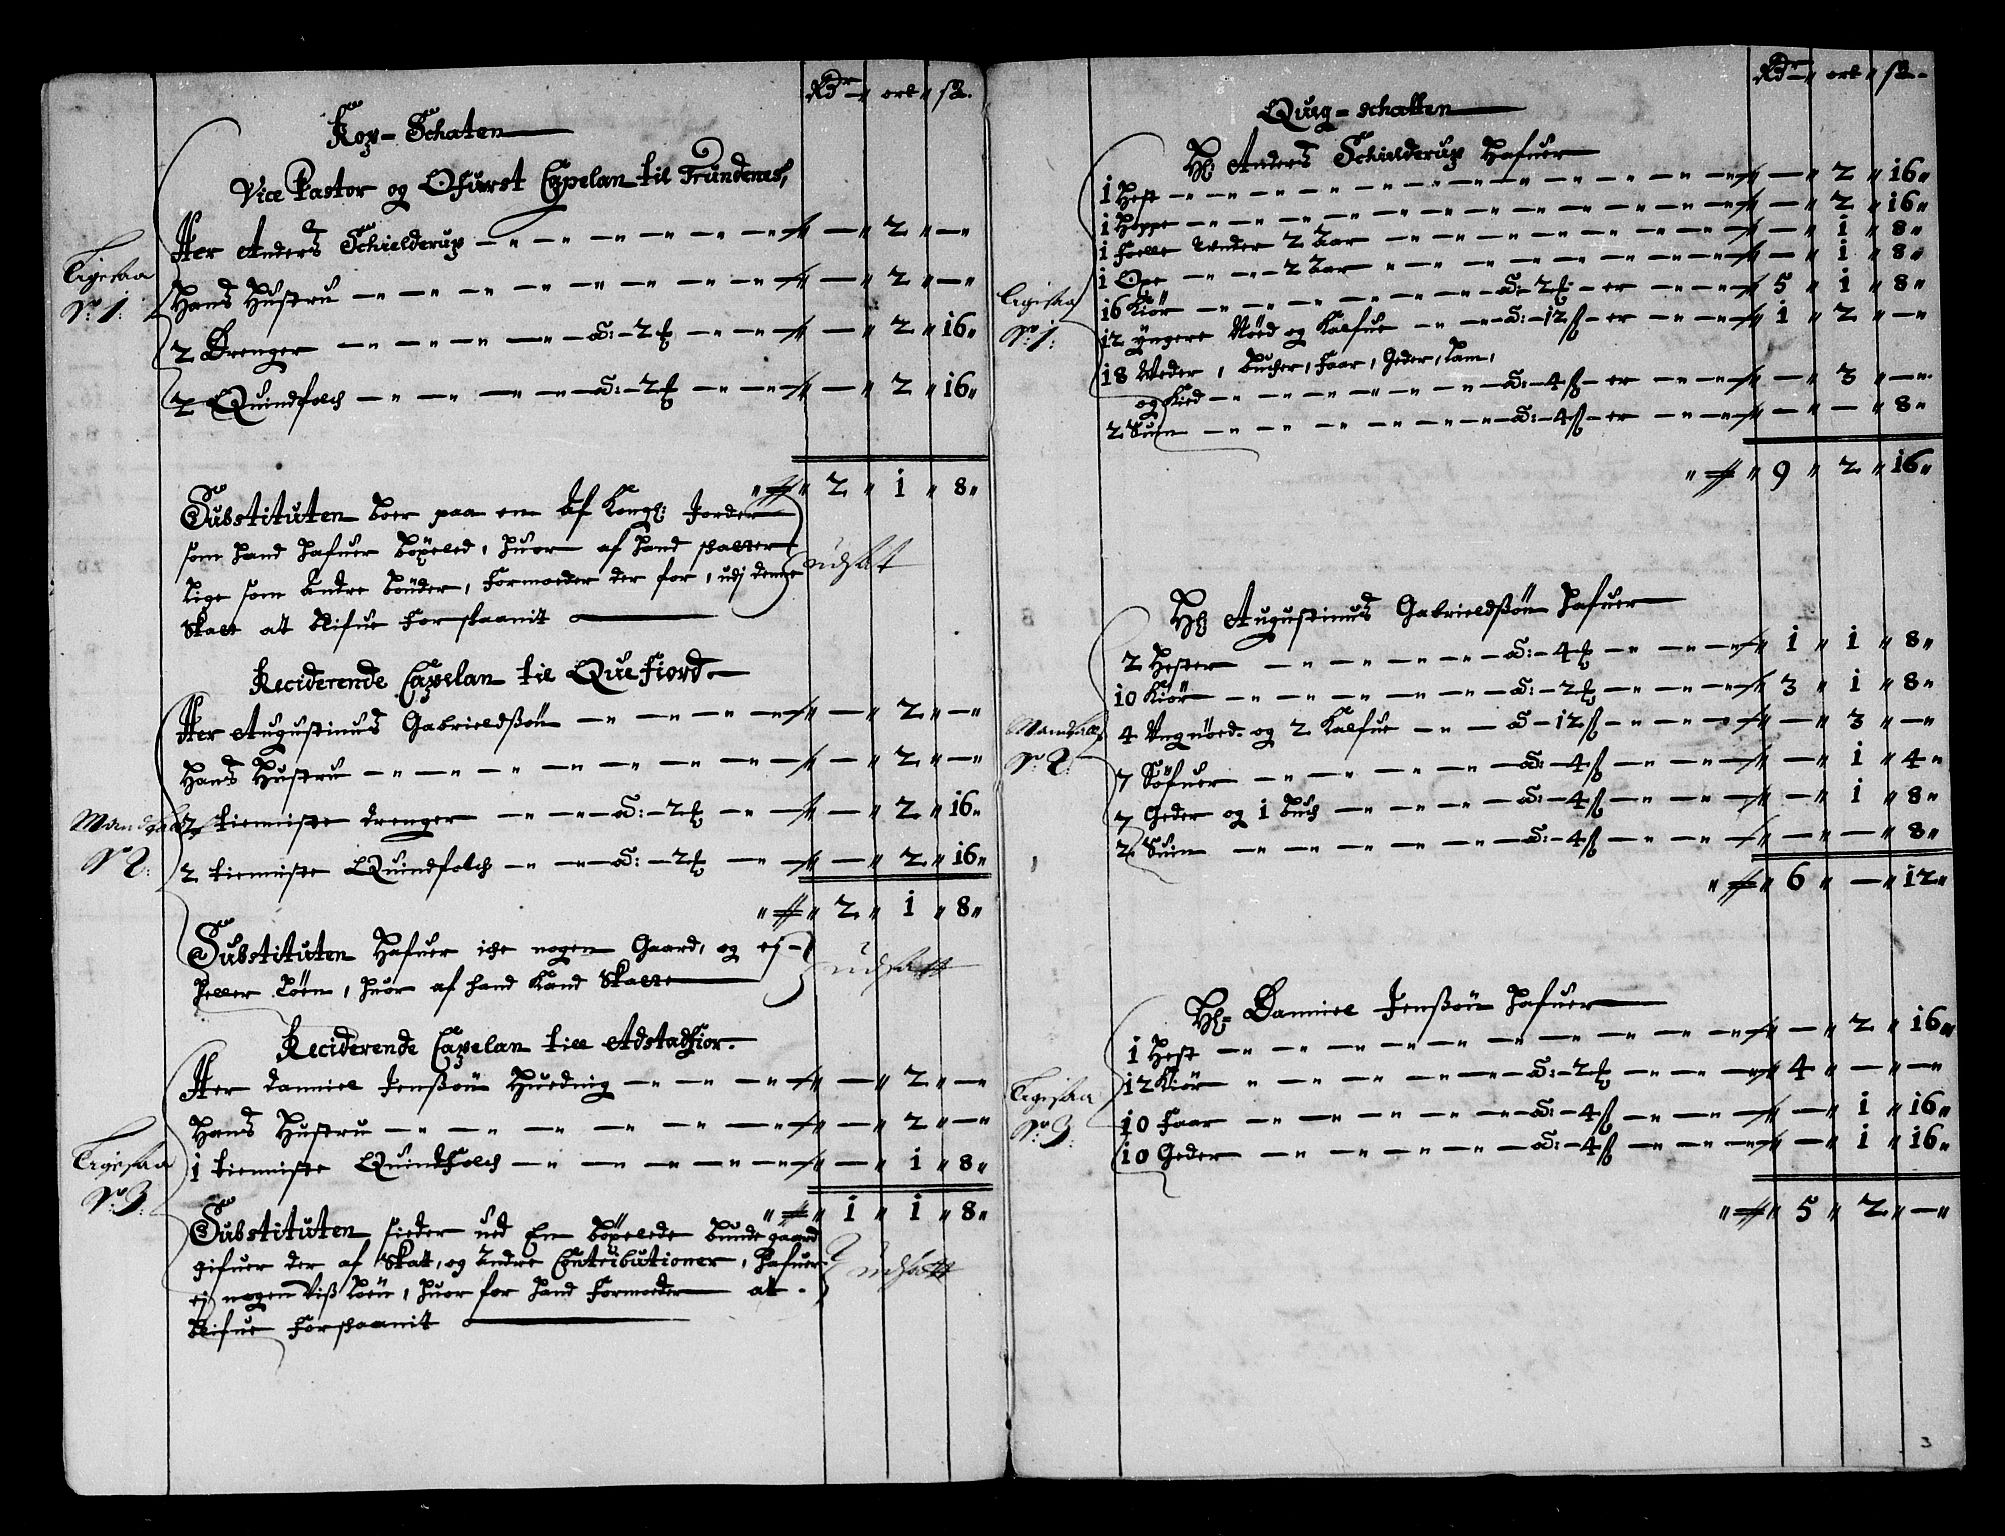 Rdr ort ß.
Kop-Schaten
Vice Pastor og Ofuerst Capelan til Trundenes,
Her Anders Schielderup — 2 —
Ligesaa
No. 1:
Hans Hustru — 2 —
2 Drenger — a: 2 — 2 16
2 Quindfolch — a: 2 — 2 16
2 1 8
Substituten boer paa en af Kongl: Jorder
som hand hafuer böxeled, huor af hand skatter
lige som andre bönder, formoder der for, udj denne
Skatt at blifue forskaanit
udsat
Reciderende Capelan til Quefiord
Her Augustinus Gabrieldßön — 2 —
Hans Hustru — 2 —
Mandtall
No. 2:
2 tienniste drenger — a: 2 — 2 16
2 tienniste Quindfolch — a: 2 — 2 16
2 1 8
Substituten hafuer iche nogen Gaard, og ej
heller Löen, huor af hand kand Skatte
udsatt
Reciderende Capelan till Adstadfior.
Her Danniel Jenßön Huedning — 2 —
Hans Hustru — 2 —
Ligesaa
No. 3:
1 tienniste Quindfolch — 1 8
1 1 8
Substituten sieder ved en böxelede bunde gaard
gifuer der af Skatt, og andre Contributioner, hafuer
ej nogen Viß Löen, huor for hand formoder at
blifue forschaanit
udsatt
Rdr ort ß.
Queg-schatten
Hr: Anders Schielderup hafuer
1 Hest — 2 16
1 Hoppe — 2 16
1 Folle under 2 Aar — 1 8
1 Oxe — 2 Aar — 1 8
Ligesaa
No. 1:
16 Kiör — a: 2 — er — 5 1 8
12 yngere Nöed og Kalfue — a: 12 ß er — 1 2 —
18 Veder, bucher, faar, Geder, Lam,
og Kied — a: 4 ß er — 3 —
2 Suin — a: 4 ß er — 8
9 2 16
Hr Augustinus Gabrieldßön hafuer
2 Hester — a: 4 — 1 1 8
10 Kiör — a: 2 — 3 1 8
Mandtall
No. 2:
4 Ungnöed og 2 Kalfue — a 12 ß — 3 —
7 Söfuer — a: 4 ß — 1 4
7 Geder og 1 buch — a: 4 ß — 1 8
2 Suin — a: 4 ß — 8
6 — 12
Hr: Danniel Jenßön hafuer
1 Hest — 2 16
12 Kiör — a: 2 — 4 — —
Ligesaa
No. 3:
10 Faar — a: 4 ß — 1 16
10 Geder — a: 4 ß — 1 16
5 2 —
3